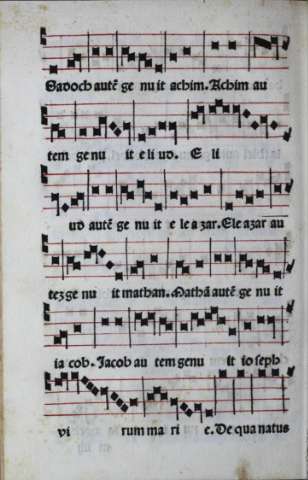 Sadoch autē ge nu it achim. Achim au
tem genu it e li ud. E li
ud autē ge nu it e le a zar. Ele azar au
tez ge nu it mathan. Mathā autē ge nu it
ia cob. Jacob au tem genu it io seph
vi rum ma ri e. De qua natus